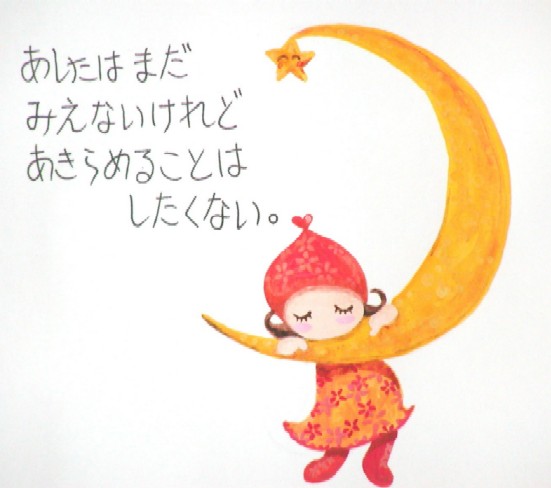 あしたは まだ
みえないけれど
あきらめることは
したくない。